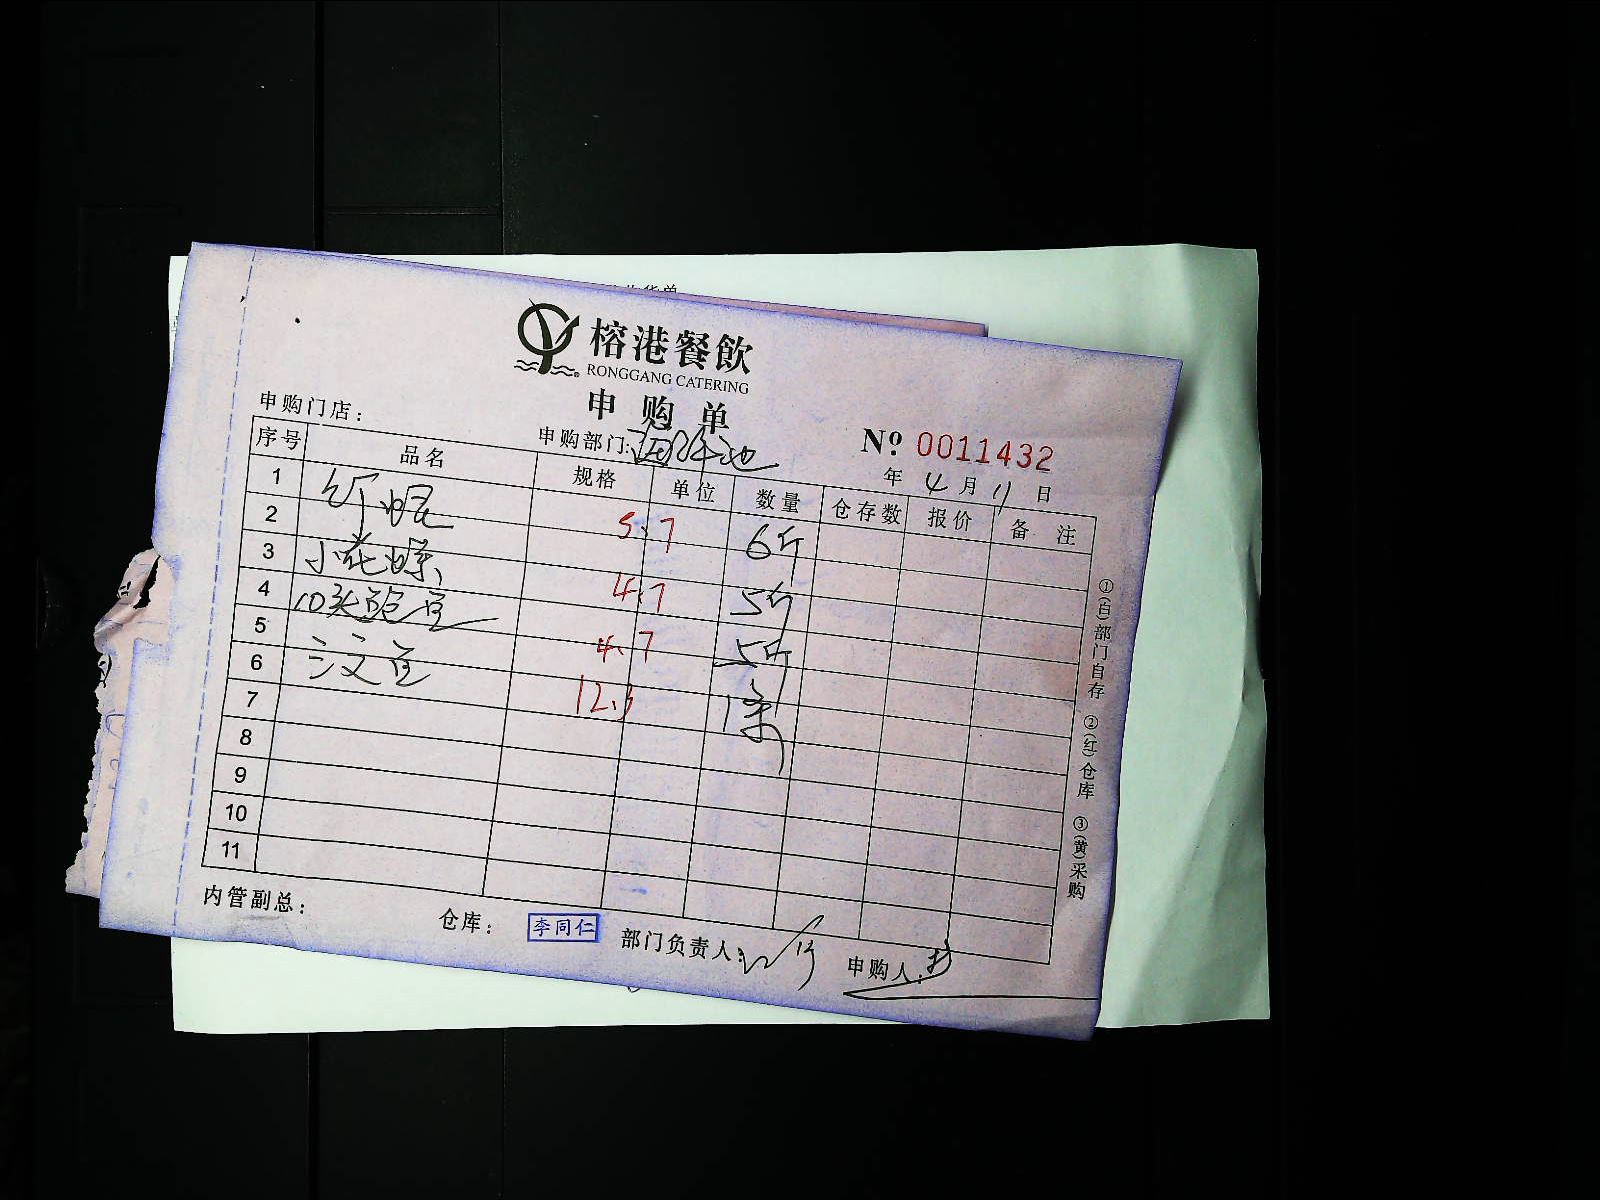 榕港餐飲
RONGGANG CATERING
申购单
申购门店: 申购部门: 海鲜池 № 0011432
年 4 月 11 日
序号 品名 规格 单位 数量 仓存数 报价 备注
1
2 5.7 6斤
3 小花螺 4.7 5斤
4 10头鲍鱼 4.7 5斤
5
6 12.3 1条
7
8
9
10
11
①(白)部门自存 ②(红)仓库 ③(黄)采购
内管副总: 仓库: 李同仁 部门负责人: 申购人: